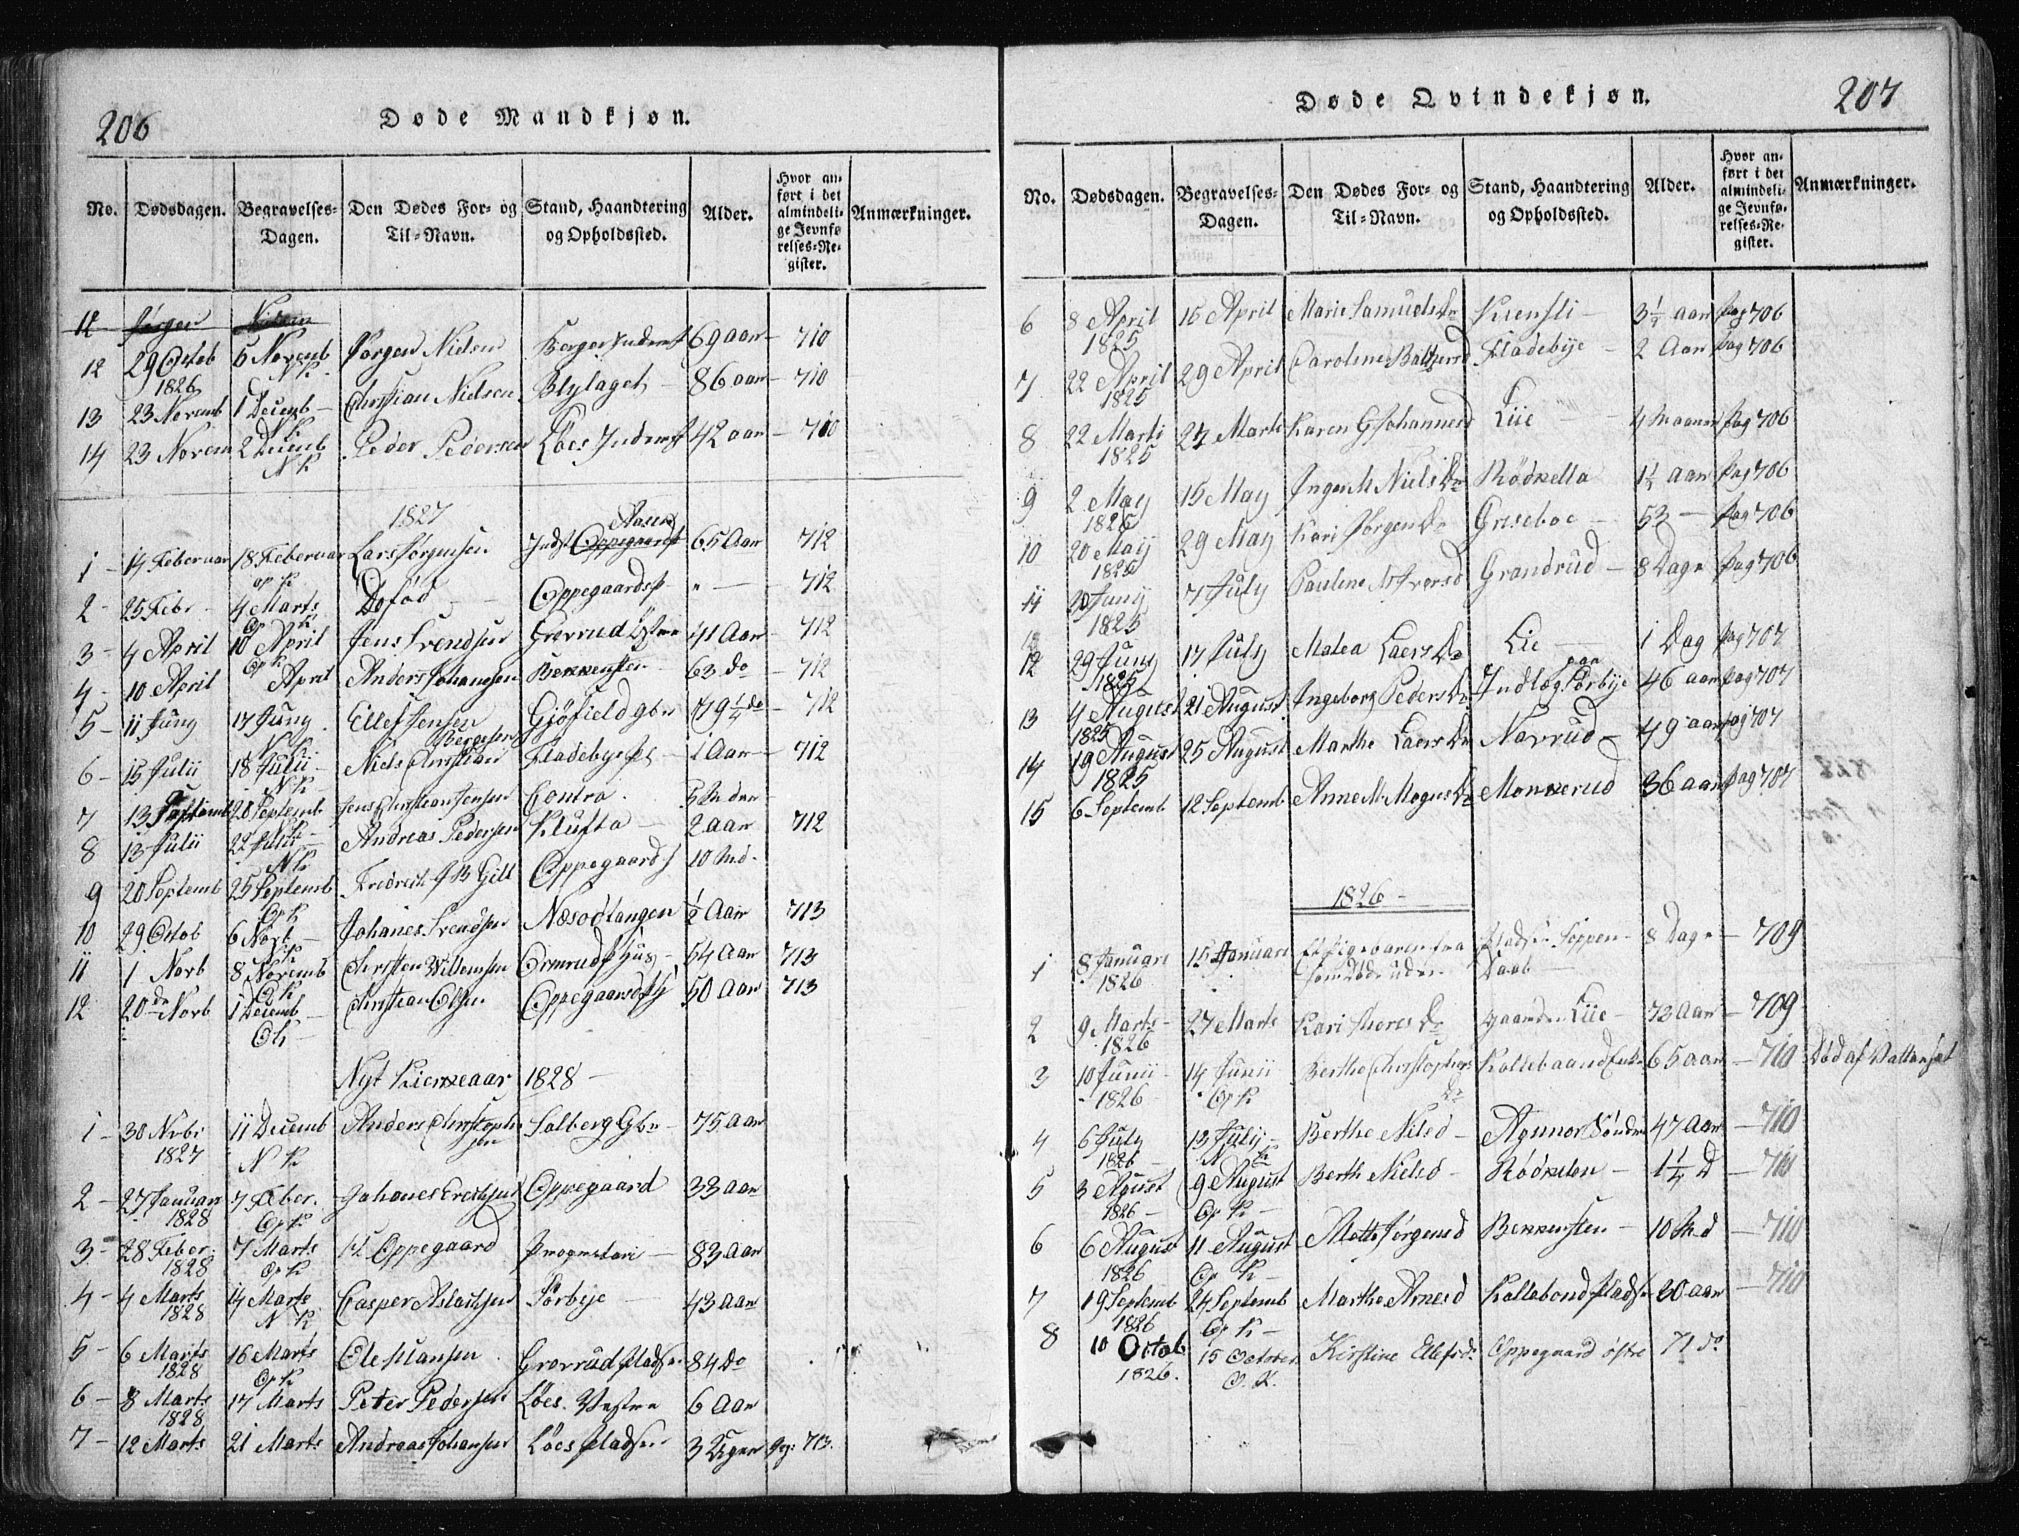 206
Døde Mandkjøn.
No. Dødsdagen. Begravelses-Dagen. Den Dødes For- og Til-Navn. Stand, Haandtering og Opholdssted. Alder. Hvor anført i det almindelige Jevnførelses-Register. Anmærkninger.
12 Jørgen Nielsen
12 29 Octob 1826 5 Novemb N K. Jørgen Nielsen Berger Inderst 69 aar 710
13 23 Novemb 1 Decemb N K. Christian Nielsen Blylaget 86 aar 710
14 23 Novem 2 Decemb N K Peder Pedersen Løes Inderst 42 aar 710
1827
1 14 Februar 18 Februar op K Lars Jørgensen Inds Oppegaards Aasen 65 Aar 712
2 25 Febr 4 Marts Op K Døfød Oppegaards " 712
3 4 April 10 April Op K Jens Svendsen Grevrud Østre 41 Aar 712
4 10 April April Anders Johansen Bekkensten 63 do 712
5 11 Juny 17 Juny Ellef Jensen Gjøfield gbr 79 1/4 do 712
6 15 Julii 18 Julii N K Niels Christian Bergesen Fladebye 1 Aar 712
7 13 Septemb 20 Septemb Jens Christian Jensen Contra 5 Mdr
8 13 Julii 22 Julii N K Andreas Pedersen Klufta 2 aar 712
9 20 Septemb 25 Septemb Op K Fredrech Gill Oppegaard 10 Md.
10 29 Octob 6 Novb Johanes Svendsen Næsodtangen 1/2 Aar 713
11 1 Novb 8 Novemb O K Christen Willemsen Ormrud Hus 54 Aar 713
12 20de Novb 1 Decemb O K Christian Olsen Oppegaard 50 Aar 713
Nyt Kirkeaar 1828
1 30 Nvbr 1827 11 Decemb N K Anders Christophersen Solberg Gbr 75 Aar
2 27 Januari 1828 7 Feber. Op K Johanes Erichsen Oppegaard 33 aar
3 28 Feber 1828 7 Marts Op K Oppegaard 83 Aar
4 4 Marts 1828 14 Marts N K Casper Aslachsen Sørbye 43 Aar
5 6 Marts 1828 16 Marts Op K Ole Hansen Grevrud Pladsen 84 Do
6 8 Marts 1828 17 Marts Peter Pedersen Løes Vestre 6 Aar
7 12 Marts 21 Marts Andreas Johansen Løes Pladsen 3 Uger 713.
207
Døde Qvindekjøn.
No. Dødsdagen. Begravelses-Dagen. Den Dødes For- og Til-Navn. Stand, Haandtering og Opholdssted. Alder. Hvor anført i det almindelige Jevnførelses-Register. Anmærkninger.
6 8 April 1825 15 April Marie Samuels Dr 3 1/4 aar Pag 706
7 22 April 1825 29 April Carolene Baltzersd Fladebye 2 Aar pag 706
8 22 Marti 1825 27 Marti Karen G Johannesd Liie 4 Maaner Pag 706
9 2 May 1825 15 May Inger M Niels Dr Rødkella 1 1/2 aar Pag 706
10 20 Maij 1825 29 May Kari Jørgen Dr Greseboe 53 Pag 706
11 30 Junij 1825 7 July Paulene Iversd Grandrud 8 Dage Pag 706
12 29 Juny 1825 17 July Malea Laers Dr Lie 1 Dag Pag 707
13 4 August 1825 21 August Ingeborg Peders Dr Indlæg paa Sørbye 46 aar pag 707
14 19 August 1825 25 August Marthe Laers Dr Navrud 49 aar pag 707
15 6 Septemb 12 Septemb Anne M. Magus Dr Monkerud 36 aar Pag 707
1826
1 8 Januari 1826 15 Januari Et Pigebaren fra Pladsen Seppen 8 Dage 709
2 9 Marts 1826 27 Marts Kari Thores Dr gaarden Liie 73 Aar 709
3 10 Junii 1826 14 Junii Op K Berthe Christophers Dr Kollebaand 65 aar 710 Død af Vattersot
4 6 July 1826 13 July N K Berthe Nilsd Agnnor Søndre 47 Aar 710
5 3 August 1826 9 August Op K Berthe Nielsd Rødkelen 1 1/4 D 710
6 6 August 1826 11 August Op K Mette Jørgensd Bekkensten 10 Md 710
7 19 Septemb 1826 24 Septemb Op K Marthe Arnesd Kollebond Pladsen 30 aar 710
8 10 Octob 1826. 15 October O. K. Kirstine Ellefsdr Oppegaard østre 71 do